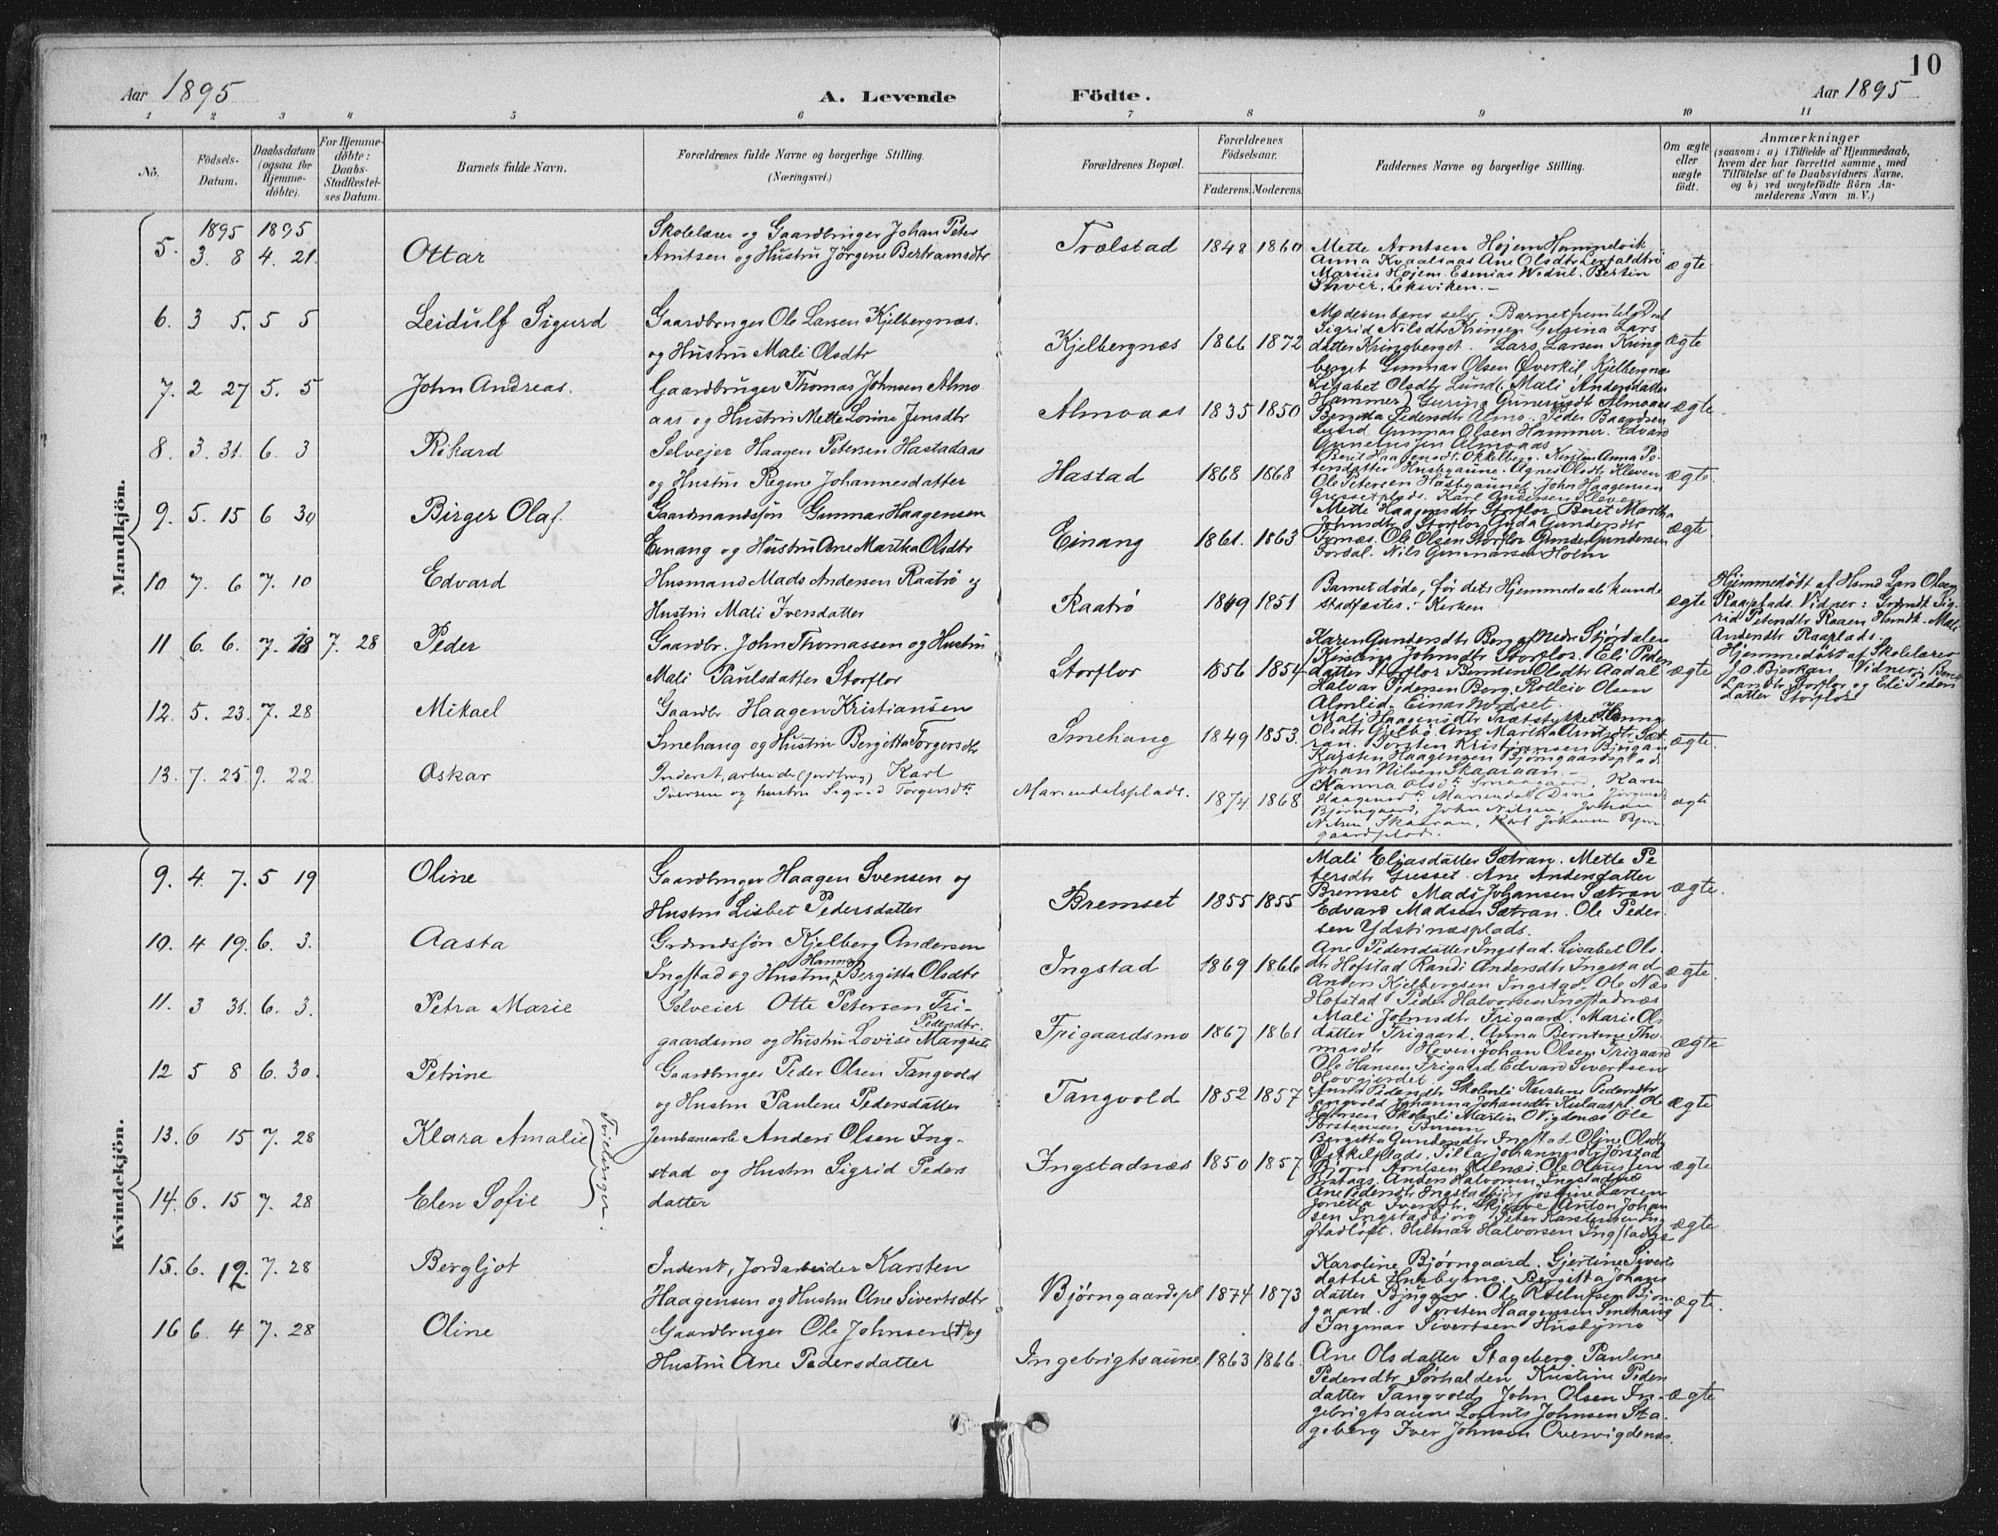 10
Aar 1895
A. Levende
Födte.
Aar 1895
1 2 3 4 5 6 7 8 9 10 11
No.
Födsels-Datum.
Daabsdatum (ogsaa for Hjemme-döbte).
For Hjemme-döbte: Daabs-Stadfæstel-ses Datum.
Barnets fulde Navn.
Forældrenes fulde Navne og borgerlige Stilling.
(Næringsvei.)
Forældrenes Bopæl.
Forældrenes Födselsaar.
Faderens. Moderens.
Faddernes Navne og borgerlige Stilling.
Om ægte eller uægte födt.
Anmærkninger
(saasom: a) i Tilfælde af Hjemmedaab,
hvem der har forrettet samme, med
Tilföielse af to Daabsvidners Navne,
og b) ved uægtefödte Börn An-
melderens Navn m. V.)
Mandkjön.
1895 1895
5. 3. 8 4. 21. Ottar
Skolelærer og Gaardbruger Johan Peter
Arntsen og Hustru Jørgine Bertramsdtr
Trælstad 1848 1860
Mette Arntsen Højem Hammervik
Anna Kvaalsaas Ane Olsdtr
Marius Højem. Esenias Wedul. Bertin
Leksviken.
ægte
6. 3 5. 5 5 Leidulf Sigurd
Gaardbruger Ole Larsen Kjelbergnæs.
og Hustru Mali Olsdtr
Kjelbergnæs 1866 1872
Moderen bærer selv. Barnet
Sigrid Nilsdtr Kringen Lars
datter Kringberget. Lars Larsen Kring
berget Gunnar Olsen Øverkil Kjelbergnæs
ægte
7. 2 27 5. 5 John Andreas.
Gaardbruger Thomas Johnsen Almo
aas og Hustru Mette Lorine Jensdtr
Almoaas 1835 1850
Lisabet Olsdtr Lund. Mali Andersdatter
Hammer Almoaas
Pedersdtr Almo. Peder Baardsen
Gunnar Olsen Hammer. Edvard
Almoaas
ægte
8. 3. 31. 6. 3 Rikard
Selvejer Haagen Petersen Hastadaas
og Hustru Regine Johannesdatter
Hastad 1868 1868
Berit Haagensdt. Okkelberg. Kirstin Anna Pe-
tersdatter Husbyaune. Agnes Olsdtr Kleven
Ole Petersen Husbyaunet. John Haagensen
Gressetplads. Karl Andersen Kleven
ægte.
9. 5. 15 6 30 Birger Olaf.
Gaardmandssøn Gunnar Haagensen
Einang og Hustru Ane Martha Olsdtr
Einang 1861. 1863
Mette Haagensdtr Storflor Berit Martha
Johnsdtr Storflor Gyda Gundersdtr
Ole Olsen Storflor Gunder Gundersen
Nils Gunnarsen Holm
ægte.
10 7. 6 7. 10 Edvard
Husmand Mads Andersen Raatrø og
Hustru Mali Iversdatter
Raatrø 1849 1851
Barnet døde, før dets Hjemmedaab kunde
stadfæstes i Kirken
ægte
Hjemmedøbt af Hsmd Lars Olsen
Raaplads. Vidner: Grdmdt Sig-
rid Petersdtr Raaen Hsmdt. Mali
Andersdtr Raaplads.
11 6. 6. 7. 18 7. 28 Peder
Gaardbr. John Thomassen og Hustru
Mali Paulsdatter Storflor
Storflor 1856 1854
Karen Gundersdtr Berg Stjørdalen
Kirstine Johnsdtr Storflor. Eli Peder
datter Storflor Berntin Olsdtr Aadal
Halvar Pedersen Berg. Rolleiv Olsen
Almlid. Einar Wordset.
ægte
Hjemmedøbt af Skolelærer
J. O. Bjerkan Vidner:
Storflor og Eli Peders
datter Storflor
12. 5. 23. 7. 28 Mikael
Gaardbr Haagen Kristiansen
Smehaug og Hustru Bergitta Torgersdtr
Smehaug 1849 1853.
Mali Haagensdtr
Olsdtr Gjelbø. Ane Martha Arntsdtr Sæt-
ran. Torsten Kristiansen Bjugan
Karsten Haagensen Bjørngaardsplads
Johan Nilsen Skaaraan.
ægte.
13. 7. 25. 9. 22 Oskar
Inderst, arbeide (jordbrug) Karl
Iversen og hustru Sigrid Torgersdtr.
Mariendalsplads. 1874 1868
Hanna Olsdtr Smaagaard, Karen
Haagensdtr Mariendal Dina Jørgens
Bjørngaard, John Nilsen, Johan
Nilsen, Skaaran, Karl Johansen Bjørn
gaardsplads.
ægte
Kvindekjön.
9. 4. 7. 5 19 Oline
Gaardbruger Haagen Svensen og
Hustru Lisbet Pedersdatter
Bremset 1855 1855
Mali Eliasdatter Sætran. Mette Pe
dersdtr Gresset. Ane Andersdatter
Bremset Mads Johansen Sætran
Edvard Madsen Sætran. Ole Peder-
sen Ydstinesplads.
ægte.
10. 4 19. 6. 3. Aasta
Grdmdssøn Kjelberg Andersen
Ingstad og Hustru Hanna Bergitta Olsdtr
Ingstad 1869 1866
Ane Pedersdatter Ingstad. Lisabet Ols
dtr Hofstad Randi Andersdtr Ingstad
Anders Kjelbergsen Ingstad. Ole Næs
Hofstad Peder Halvorsen Ingstadnæs
ægte.
11. 3 31. 6. 3. Petra Marie
Selveier Otte Petersen Fri-
gaardsmo og Hustru Lovise Margrete Pedersdtr.
Frigaardsmo 1867 1861
Mali Johnsdtr Frigaard. Marie Ols
datter Frigaard. Anna Berntine Tho
masdtr Hoven Johan Olsen Frigaard
Ole Hansen Frigaard Edvard Sivertsen
Hovgjerdet
ægte
12 5 8 6. 30. Petrine
Gaardbruger Peder Olsen Tangvold
og Hustru Pauline Pedersdatter
Tangvold 1852 1857
Pedersdtr Skolenli Kirsten Pedersdtr
Tangvold Johanna Johansdtr Ole
Skolenli Martin O Vigdenæs Ole
Torstensen
ægte
13. 6 15 7. 28 Klara Amalie
Tvillinger.
Jernbanearb Anders Olsen Ing-
stad og Hustru Sigrid Peders
datter
Ingstadnæs 1850 1857
Bergitta Gundersdtr Ingstad Oline Olsdtr
Bjørn Arntsen
Anders Halvorsen Ingstadnæs
ægte
14. 6. 15 7. 28 Elen Sofie
Ane Pedersdtr Larsen
Jonetta Iversdtr. Skjelve Anton Johan
sen Ingstadbjørg Peter Karstensen Ing
stadloft. Hilmar Halvorsen Ingstadnæs
ægte
15. 6. 12. 7. 28 Bergljot
Inderst, Jordarbeider Karsten
Haagensen og Hustru Ane Sivertsdtr
Bjørngaardspl 1874 1873
Karoline Bjørngaard. Gjertine Siverts
datter Husbymo. Bergitta Johans
datter Bjugan. Ole Rollufsen Bjørn
gaard. Torsten Haagensen Smehaug
Ingmar Sivertsen Husbymo
ægte.
16 6. 4 7. 28 Oline
Gaardbruger Ole Johnsen (†) og
Hustru Ane Pedersdatter
Ingebrigtsaune 1863 1866.
Ane Olsdatter Stageberg Pauline
Pedersdtr Sørhalden Kristine Peder
datter Tangvold, John Olsen In-
gebrigtsaune Lorents Johnsen Sta-
geberg Iver Johnsen Overvigdenæs.
ægte